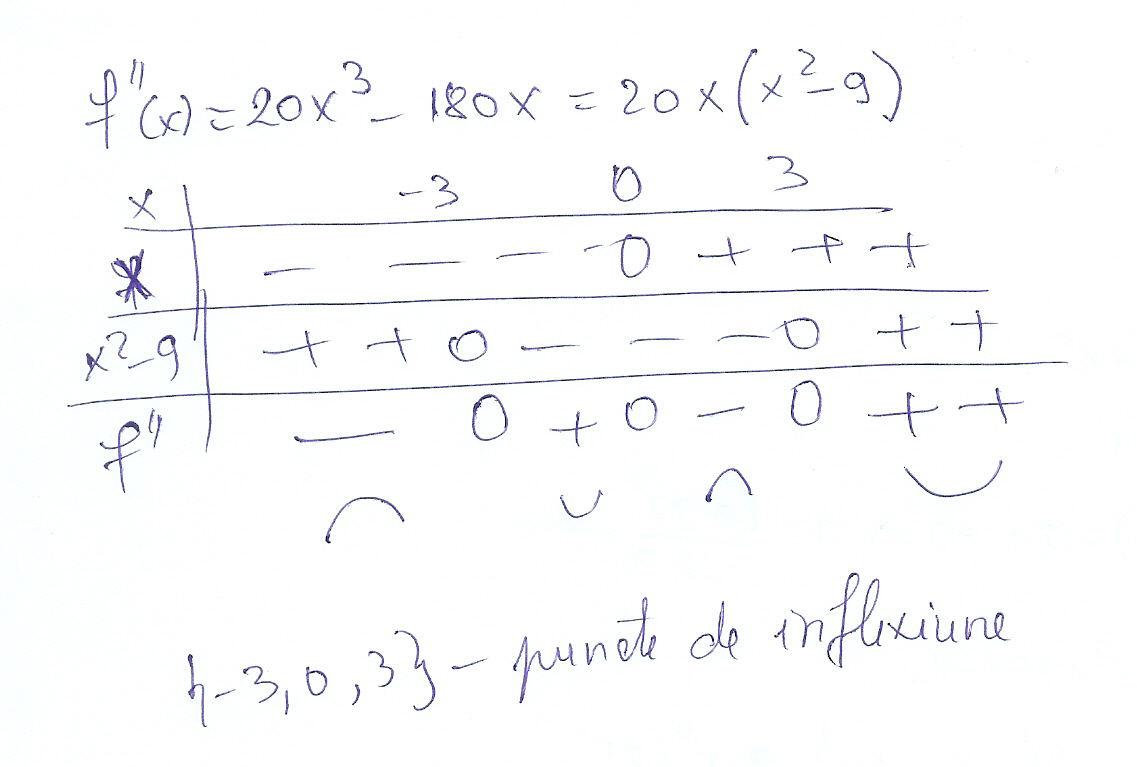 f''(x) = 20x³ - 180x = 20x(x²-9)
x | -3 0 3
x | - - - - 0 + + +
x²-9 | + + 0 - - - 0 + +
f'' | - 0 + 0 - 0 + +
⌢ ⌣ ⌢ ⌣
{-3, 0, 3} - puncte de inflexiune